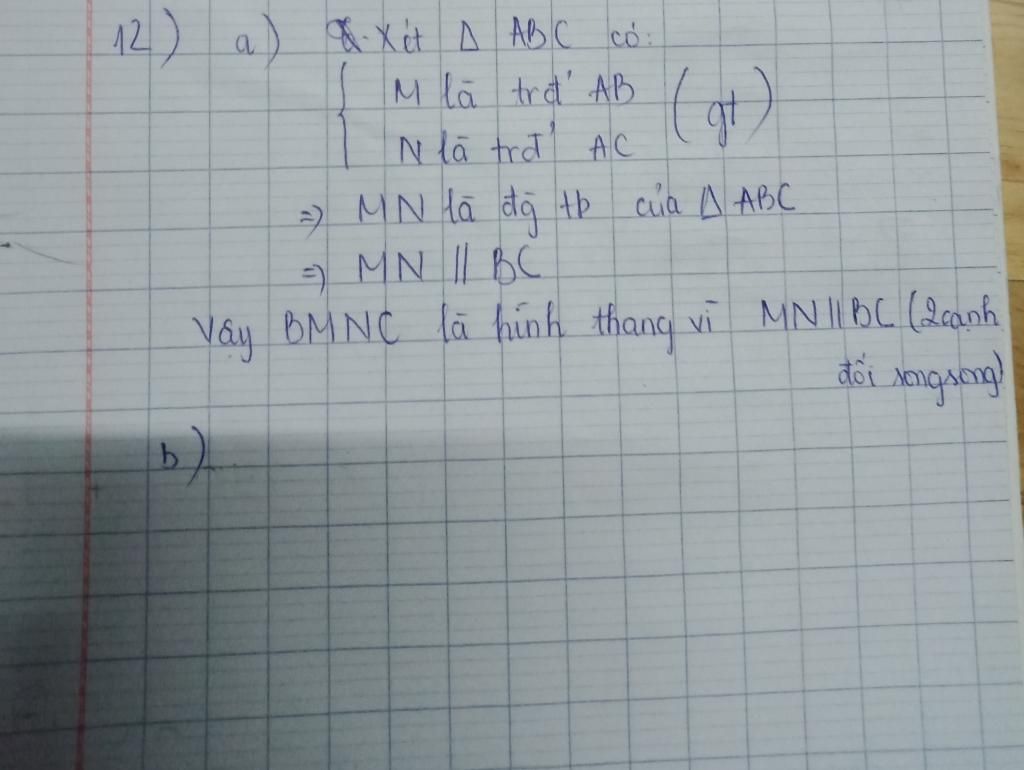 12) a) Xét Δ ABC có:
M là trđ' AB (gt)
N là trđ' AC
=> MN là đg tb của Δ ABC
=> MN // BC
Vậy BMNC là hình thang vì MN // BC (2 cạnh
đối song song)
b)